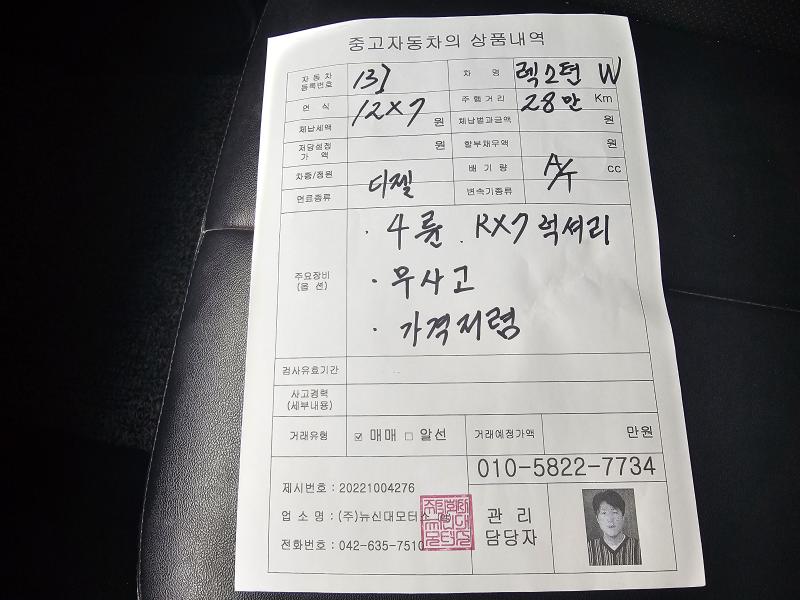 중고자동차의 상품내역
자동차 등록번호 차 명 렉스턴 W
연 식 12X7 주행거리 28만 Km
체납세액 원 체납범과금액 원
저당설정 가 액 원 할부채무액 원
차종/정원 배 기 량 A/T cc
연료종류 디젤 변속기종류
주요장비 (옵 션)
· 4륜 . RX7 럭셔리
· 무사고
· 가격저렴
검사유효기간
사고경력 (세부내용)
거래유형 ☑ 매매 □ 알선 거래예정가액 만원
010-5822-7734
제시번호 : 20221004276
업 소 명 : (주)뉴신대모터스
전화번호 : 042-635-7510
관 리 담당자